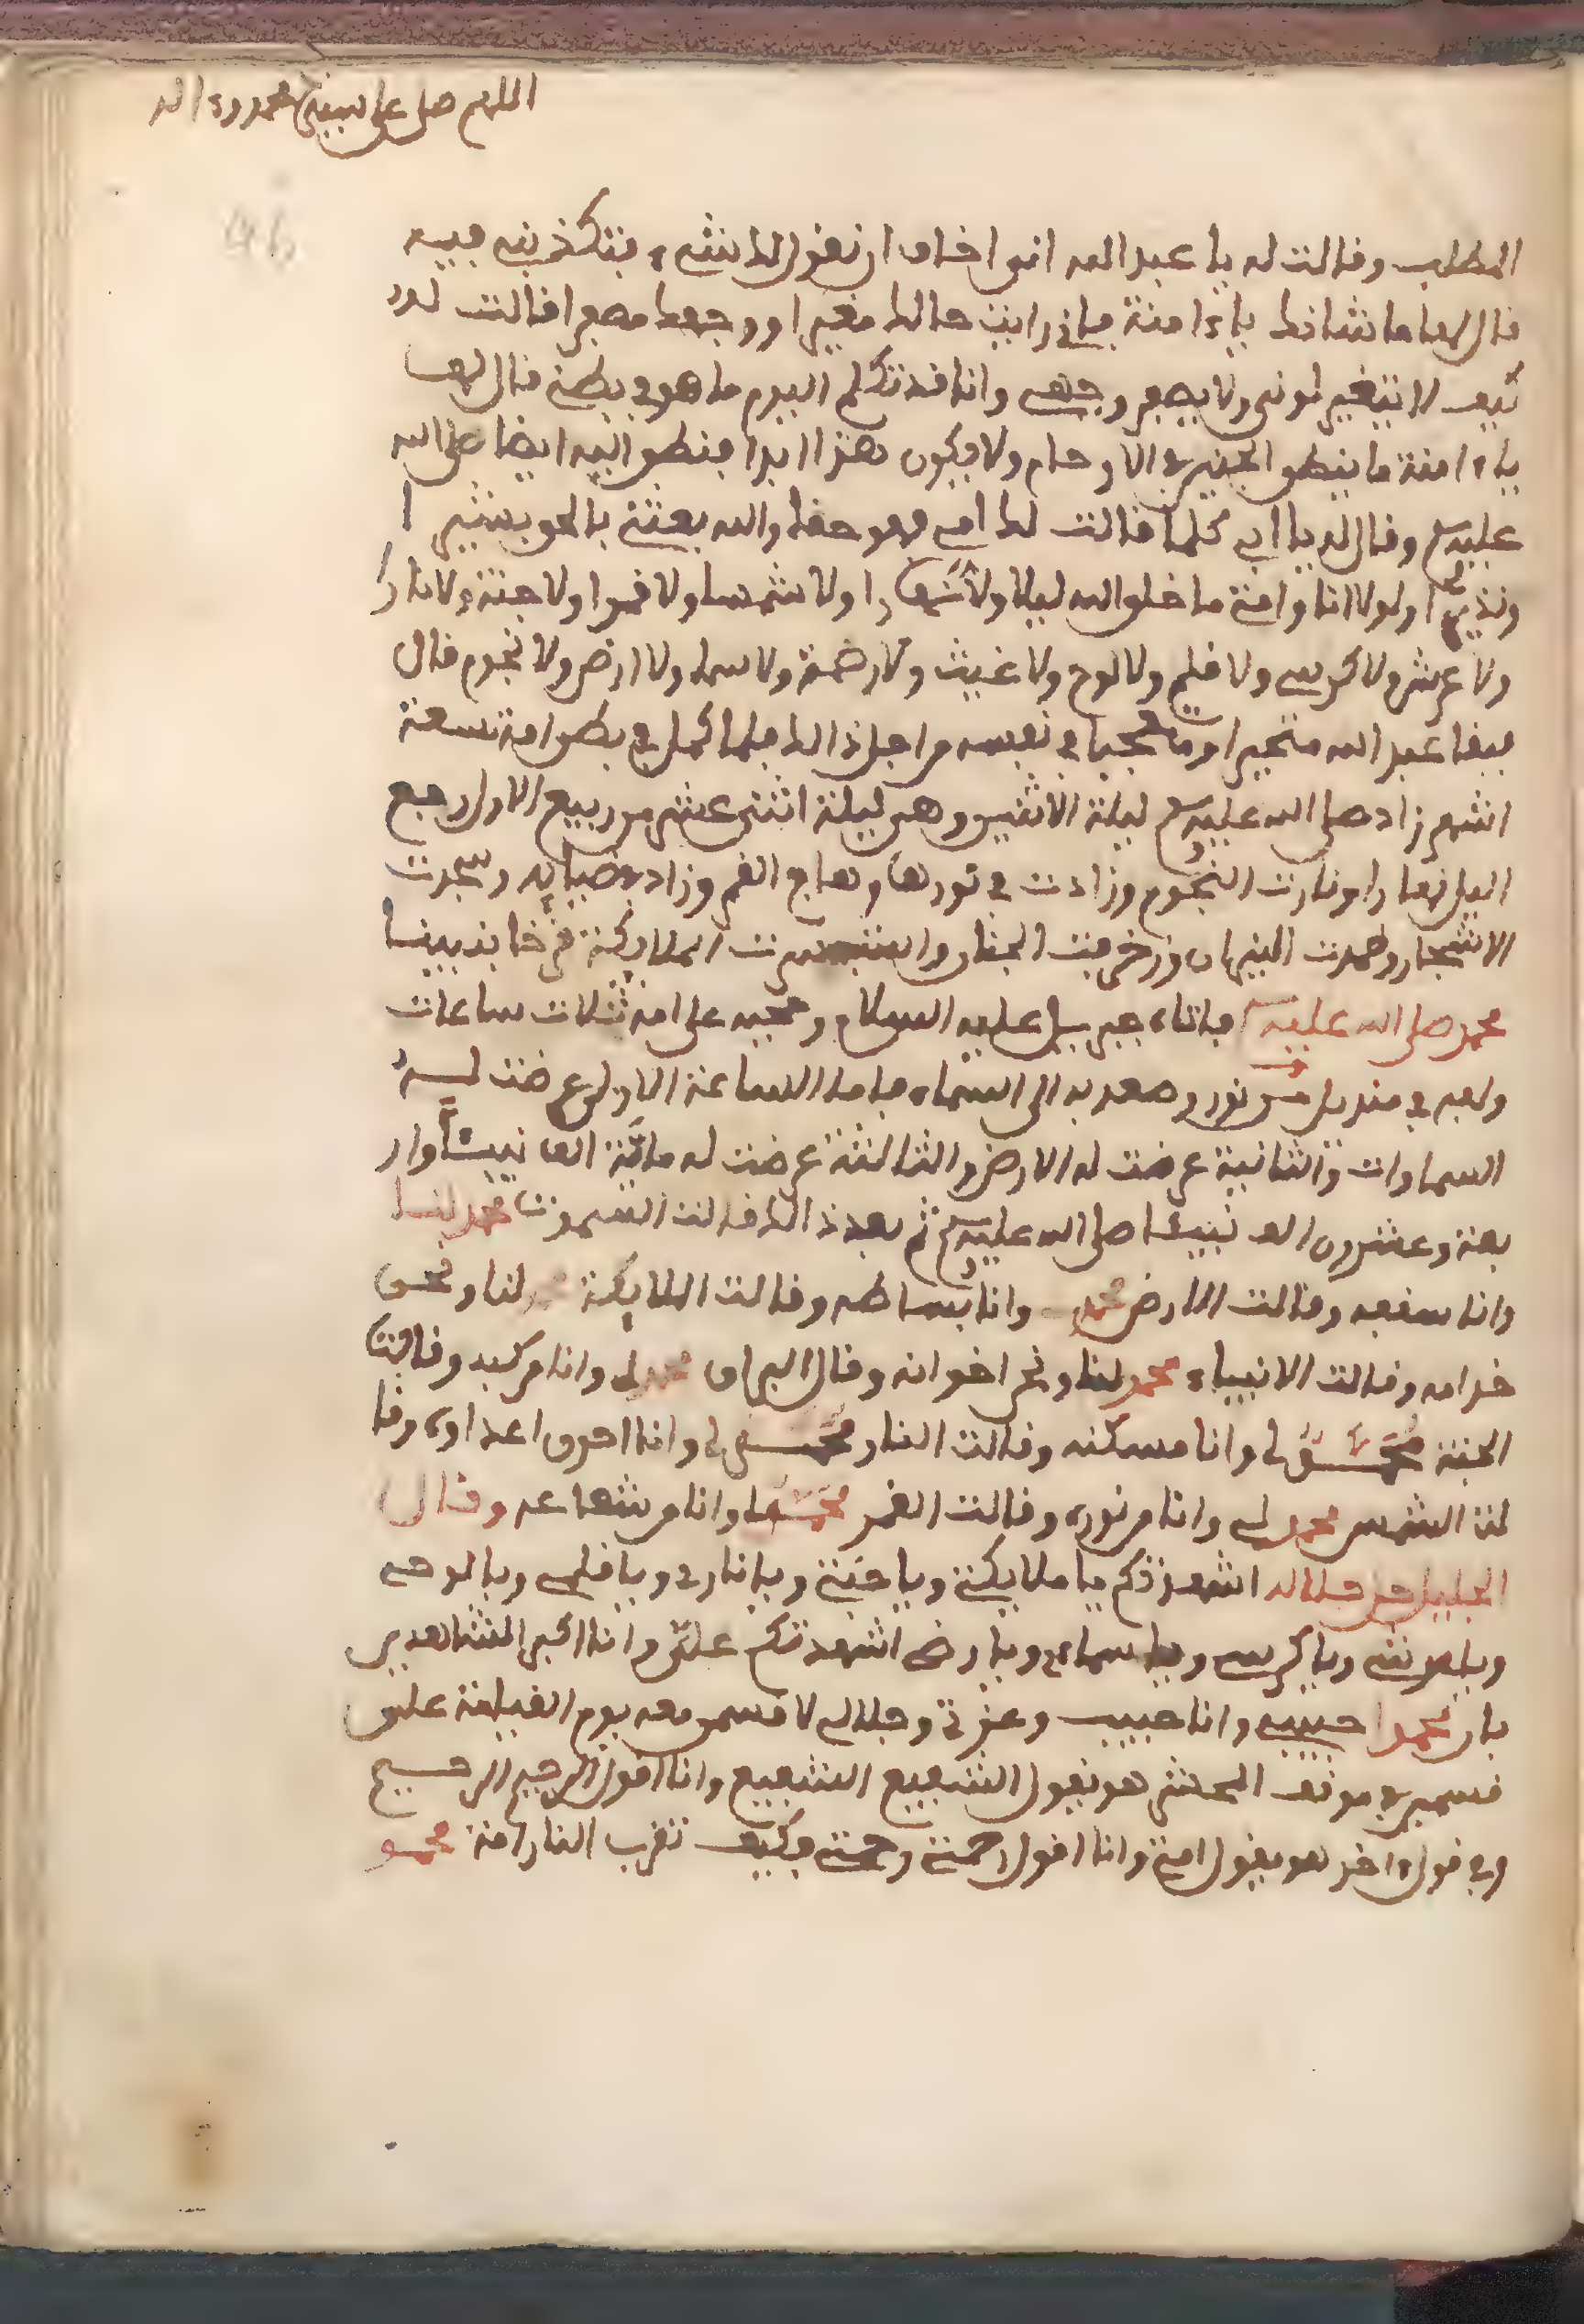 اللهم صل على نبينا محمد وءاله
46
المطلب وقالت له يا عبد الله اني اخاف ان نقول لك شيء فتكذبني فيه
قال لها ما شانك ياءامنة فاني رايت حالك مغيرا ووجهك مصفرا فقالت له
كيف لا يتغير لوني ولا يصفر وجهي وانا قد تكلم اليوم ما هو في بطني قال لها
ياءامنة ما ينطق الجنين في الارحام ولا يكون هذا ابدا فنطق اليه ايضا صلى الله
عليه وسلم وقال له يا ابي كلما قالت لك امي فهو حقا والله بعثني بالحق بشيرا
ونذيرا ولولا انا وامتي ما خلق الله ليلا ولا نهارا ولا شمسا ولا قمرا ولا جنة ولا نارا
ولا عرش ولا كرسي ولا قلم ولا لوح ولا غيث ولا رحمة ولا سماء ولا ارض ولا نجوم قال
فبقا عبد الله متحيرا ومتعجبا في نفسه من اجل ذالك فلما كمل في بطن امه تسعة
اشهر زاد صلى الله عليه وسلم ليلة الاثنين وهي ليلة اثنى عشر من ربيع الاول رجع
اليل نهارا ونارت النجوم وزادت في نورها وهاج القمر وزاد في ضيايه وسجدت
الاشجار وطهدت النيران وزخرفت الجنان واستبشرت الملايكة فرحا بنبينا
محمد صلى الله عليه وسلم فاتاه جبريل عليه السلام وحجبه على امه ثلاث ساعات
ولفه في منديل من نور وصعد به الى السماء فاما الساعة الاولى عرضت له
السماوات والثانية عرضت له الارض والثالثة عرضت له مائة الف نبيئا وار
بعة وعشرون الف نبيئا صلى الله عليه وسلم ثم بعد ذالك قالت السموت محمد لنا
وانا سقفه وقالت الارض محمد وانا بساطه وقالت الملايكة محمد لنا ونحن
خدامه وقالت الانبياء محمد لنا ونحن اخوانه وقال البراق محمد لي وانا مركبه وقالت
الجنة محمد لي وانا مسكنه وقالت النار محمد لي وانا احرق اعداءه وقا
لت الشمس محمد لي وانا من نوره وقالت القمر محمد لنا وانا من شعاعه وقال
الجليل جل جلاله اشهدتكم يا ملايكتي ويا جنتي ويا ناري ويا قلمي ويا لوحي
ويا عرشي ويا كرسي ويا سماءي ويا رضي اشهدتكم علي وانا اكبر الشاهدين
بان محمدا حبيبي وانا حبيب وعزتي وجلالي لا قسمن معه يوم القيامة على
قسمين في موقف المحشر هو يقول الشفيع الشفيع وانا اقول الرحيم الرحيم
وفي قول ءاخر هو يقول امتي وانا اقول رحمتي رحمتي فكيف تقرب النار امة محمد